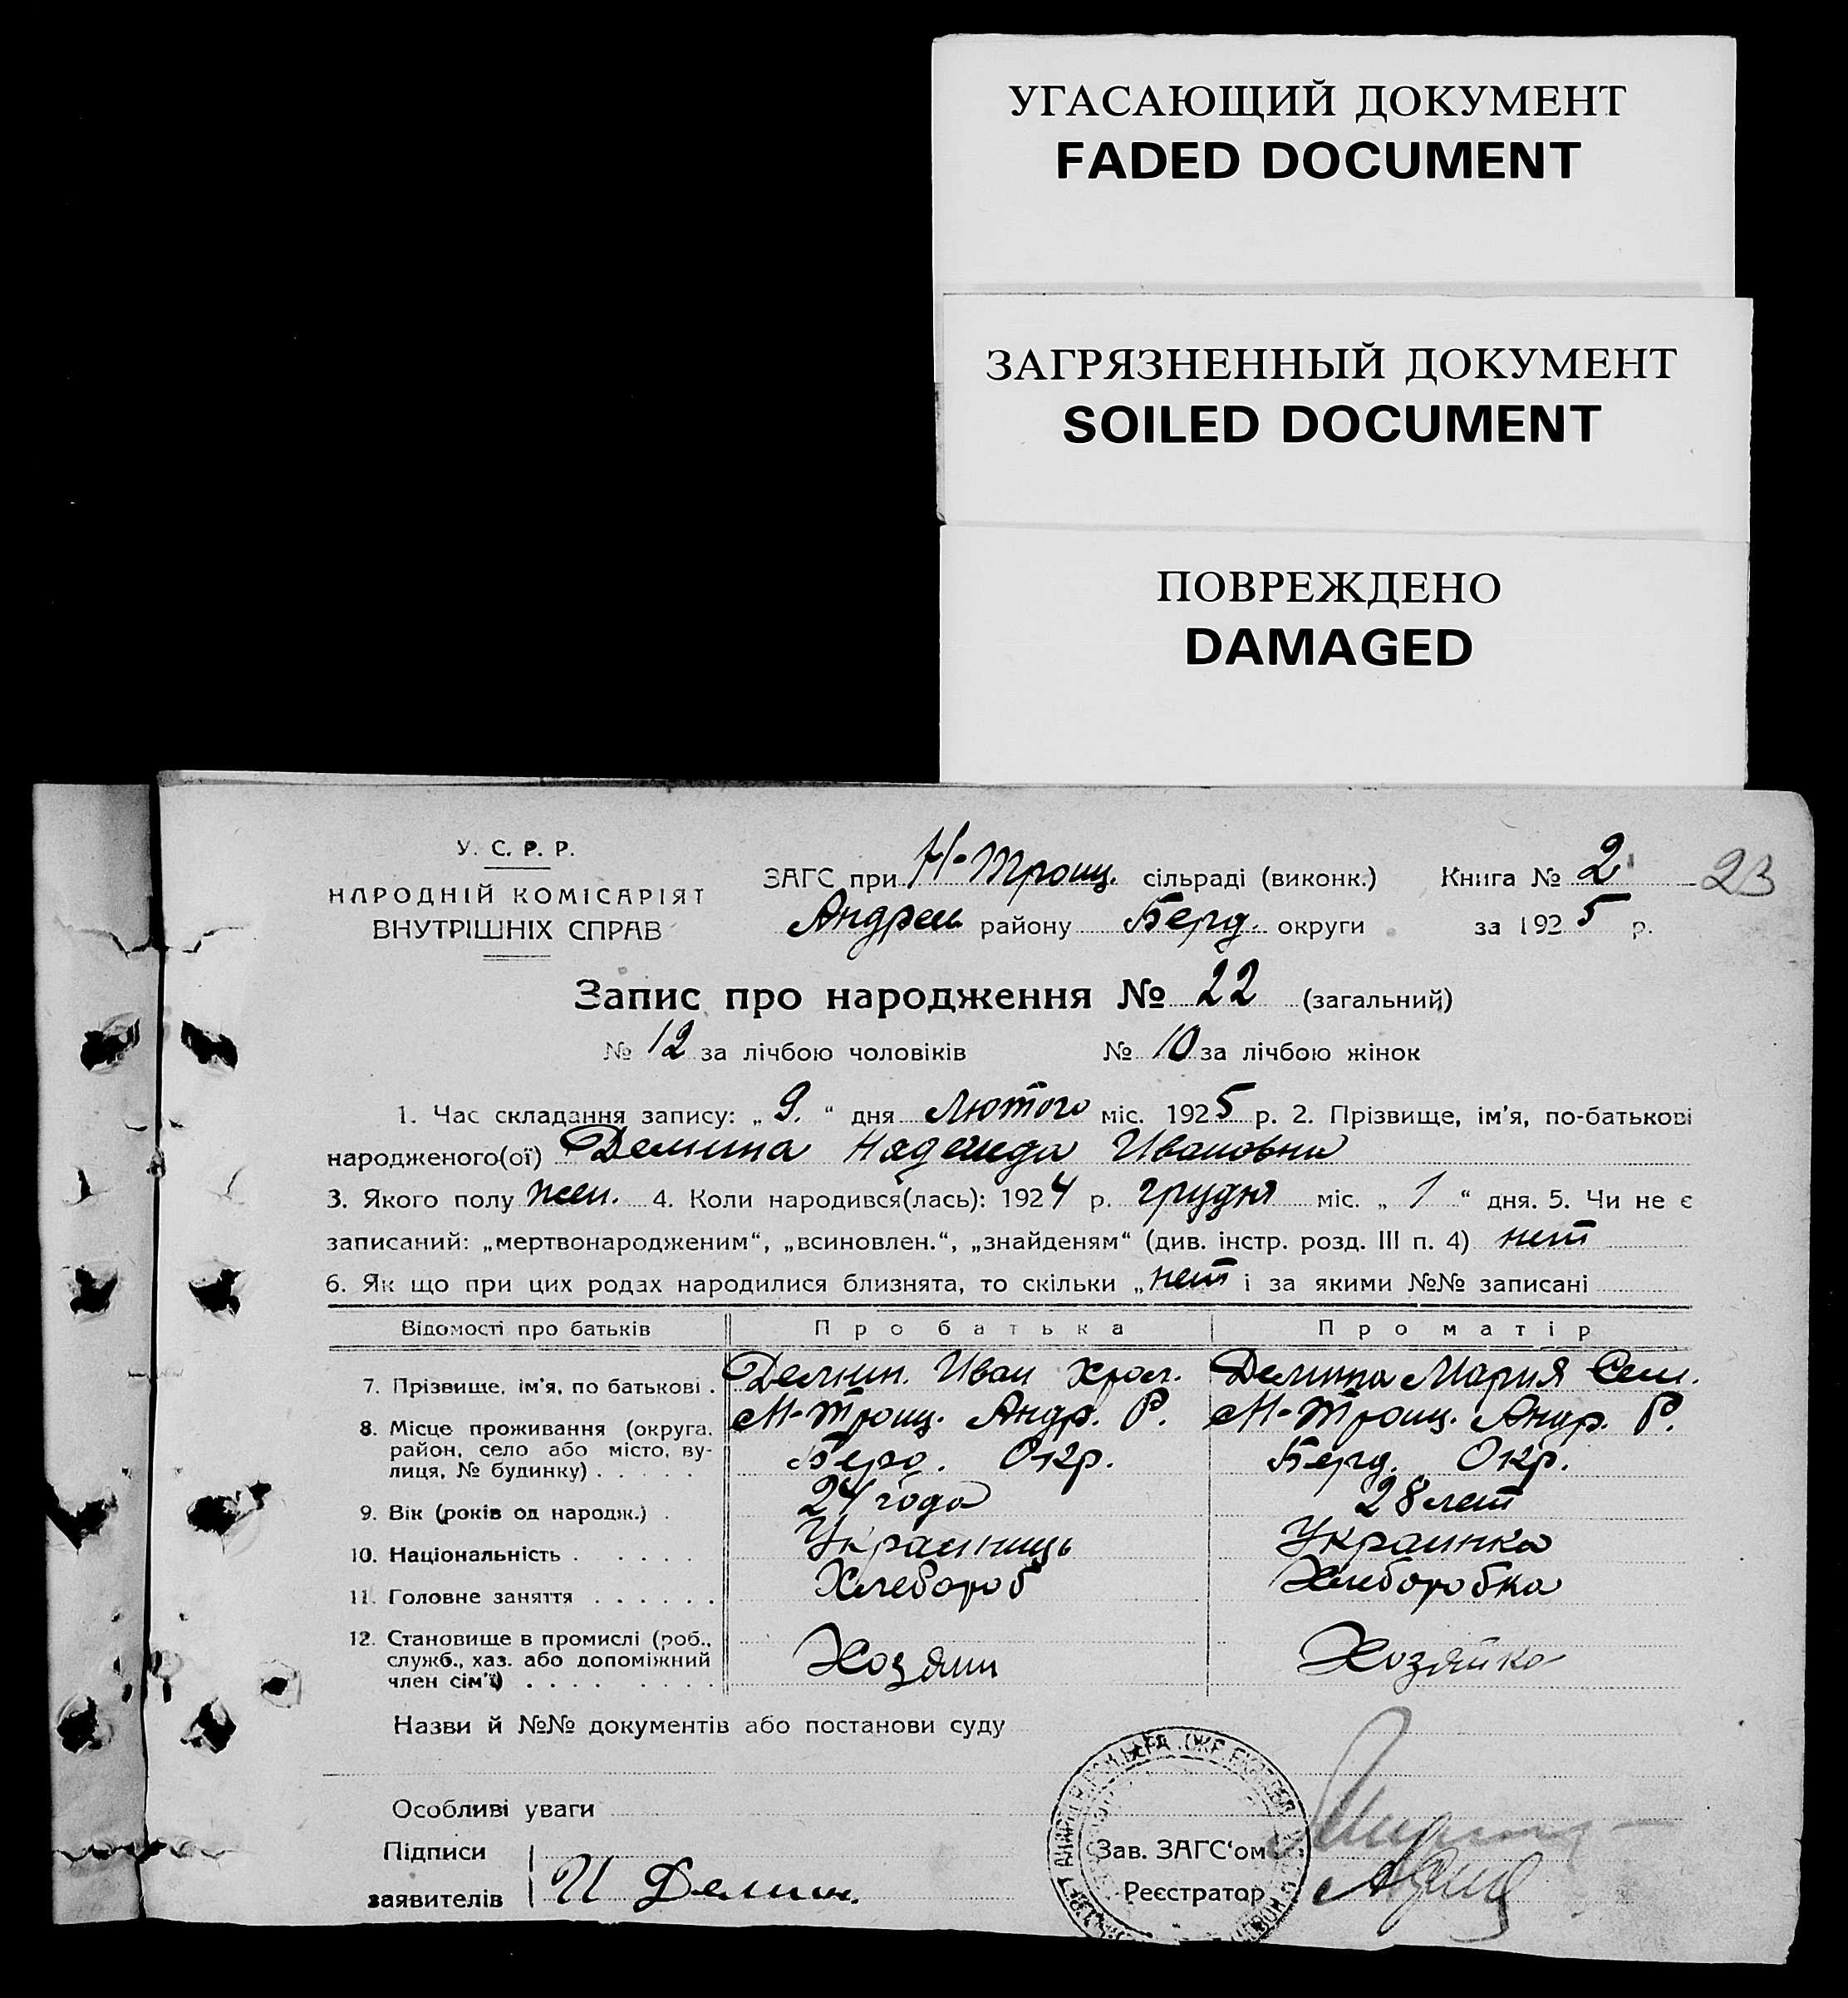 УГАСАЮЩИЙ ДОКУМЕНТ
FADED DOCUMENT
ЗАГРЯЗНЕННЫЙ ДОКУМЕНТ
SOILED DOCUMENT
ПОВРЕЖДЕНО
DAMAGED
У. С. Р. Р.
НАРОДНІЙ КОМІСАРІЯТ
ВНУТРІШНІХ СПРАВ
ЗАГС при Н-Трощ. сільраді (виконк.) Книга № 2 23
Андреев району Берд. округи за 1925 р.
Запис про народження № 22 (загальний)
№ 12 за лічбою чоловіків № 10 за лічбою жінок
1. Час складання запису: „ 9. “ дня Лютого міс. 1925 р. 2. Прізвище, ім'я, по-батькові
народженого(ої) Демина Надежда Ивановна
3. Якого полу жен. 4. Коли народився(лась): 1924 р. грудня міс. „ 1 “ дня. 5. Чи не є
записаний: „мертвонародженим“, „всиновлен.“, „знайденям“ (див. інстр. розд. III п. 4) нет
6. Як що при цих родах народилися близнята, то скільки „ нет і за якими №№ записані
Відомості про батьків Про батька Про матір
7. Прізвище, ім'я, по батькові . Демин. Иван Демина Мария Сем.
8. Місце проживання (округа, Н-Трощ. Андр. Р. Н-Трощ. Андр. Р.
район, село або місто, ву-
лиця, № будинку) . . . . . Берд. Окр. Берд. Окр.
9. Вік (років од народж.) . 24 года 28 лет
10. Національність . . . . . Украинць Украинка
11. Головне заняття . . . . . . Хлебороб Хлеборобка
12. Становище в промислі (роб.,
служб., хаз. або допоміжний Хозяин Хозяйка
член сім'ї) . . . . . . . .
Назви й №№ документів або постанови суду
Особливі уваги
Підписи
Зав. ЗАГС'ом
заявителів И Демин.
Реєстратор